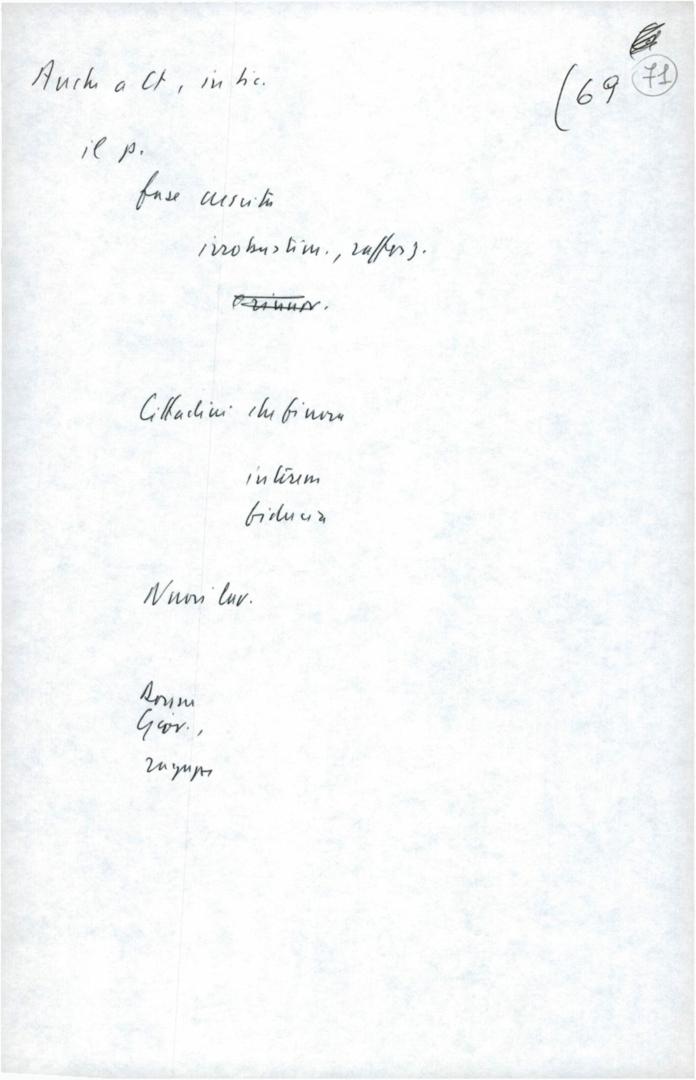 (69 71
Anche a Ct, in Sic.
il p.
fase crescita
irrobustim., rafforz.
Cittadini che finora
interesse
fiducia
Nuovi lav.
Donne
Giov.,
ragazzi